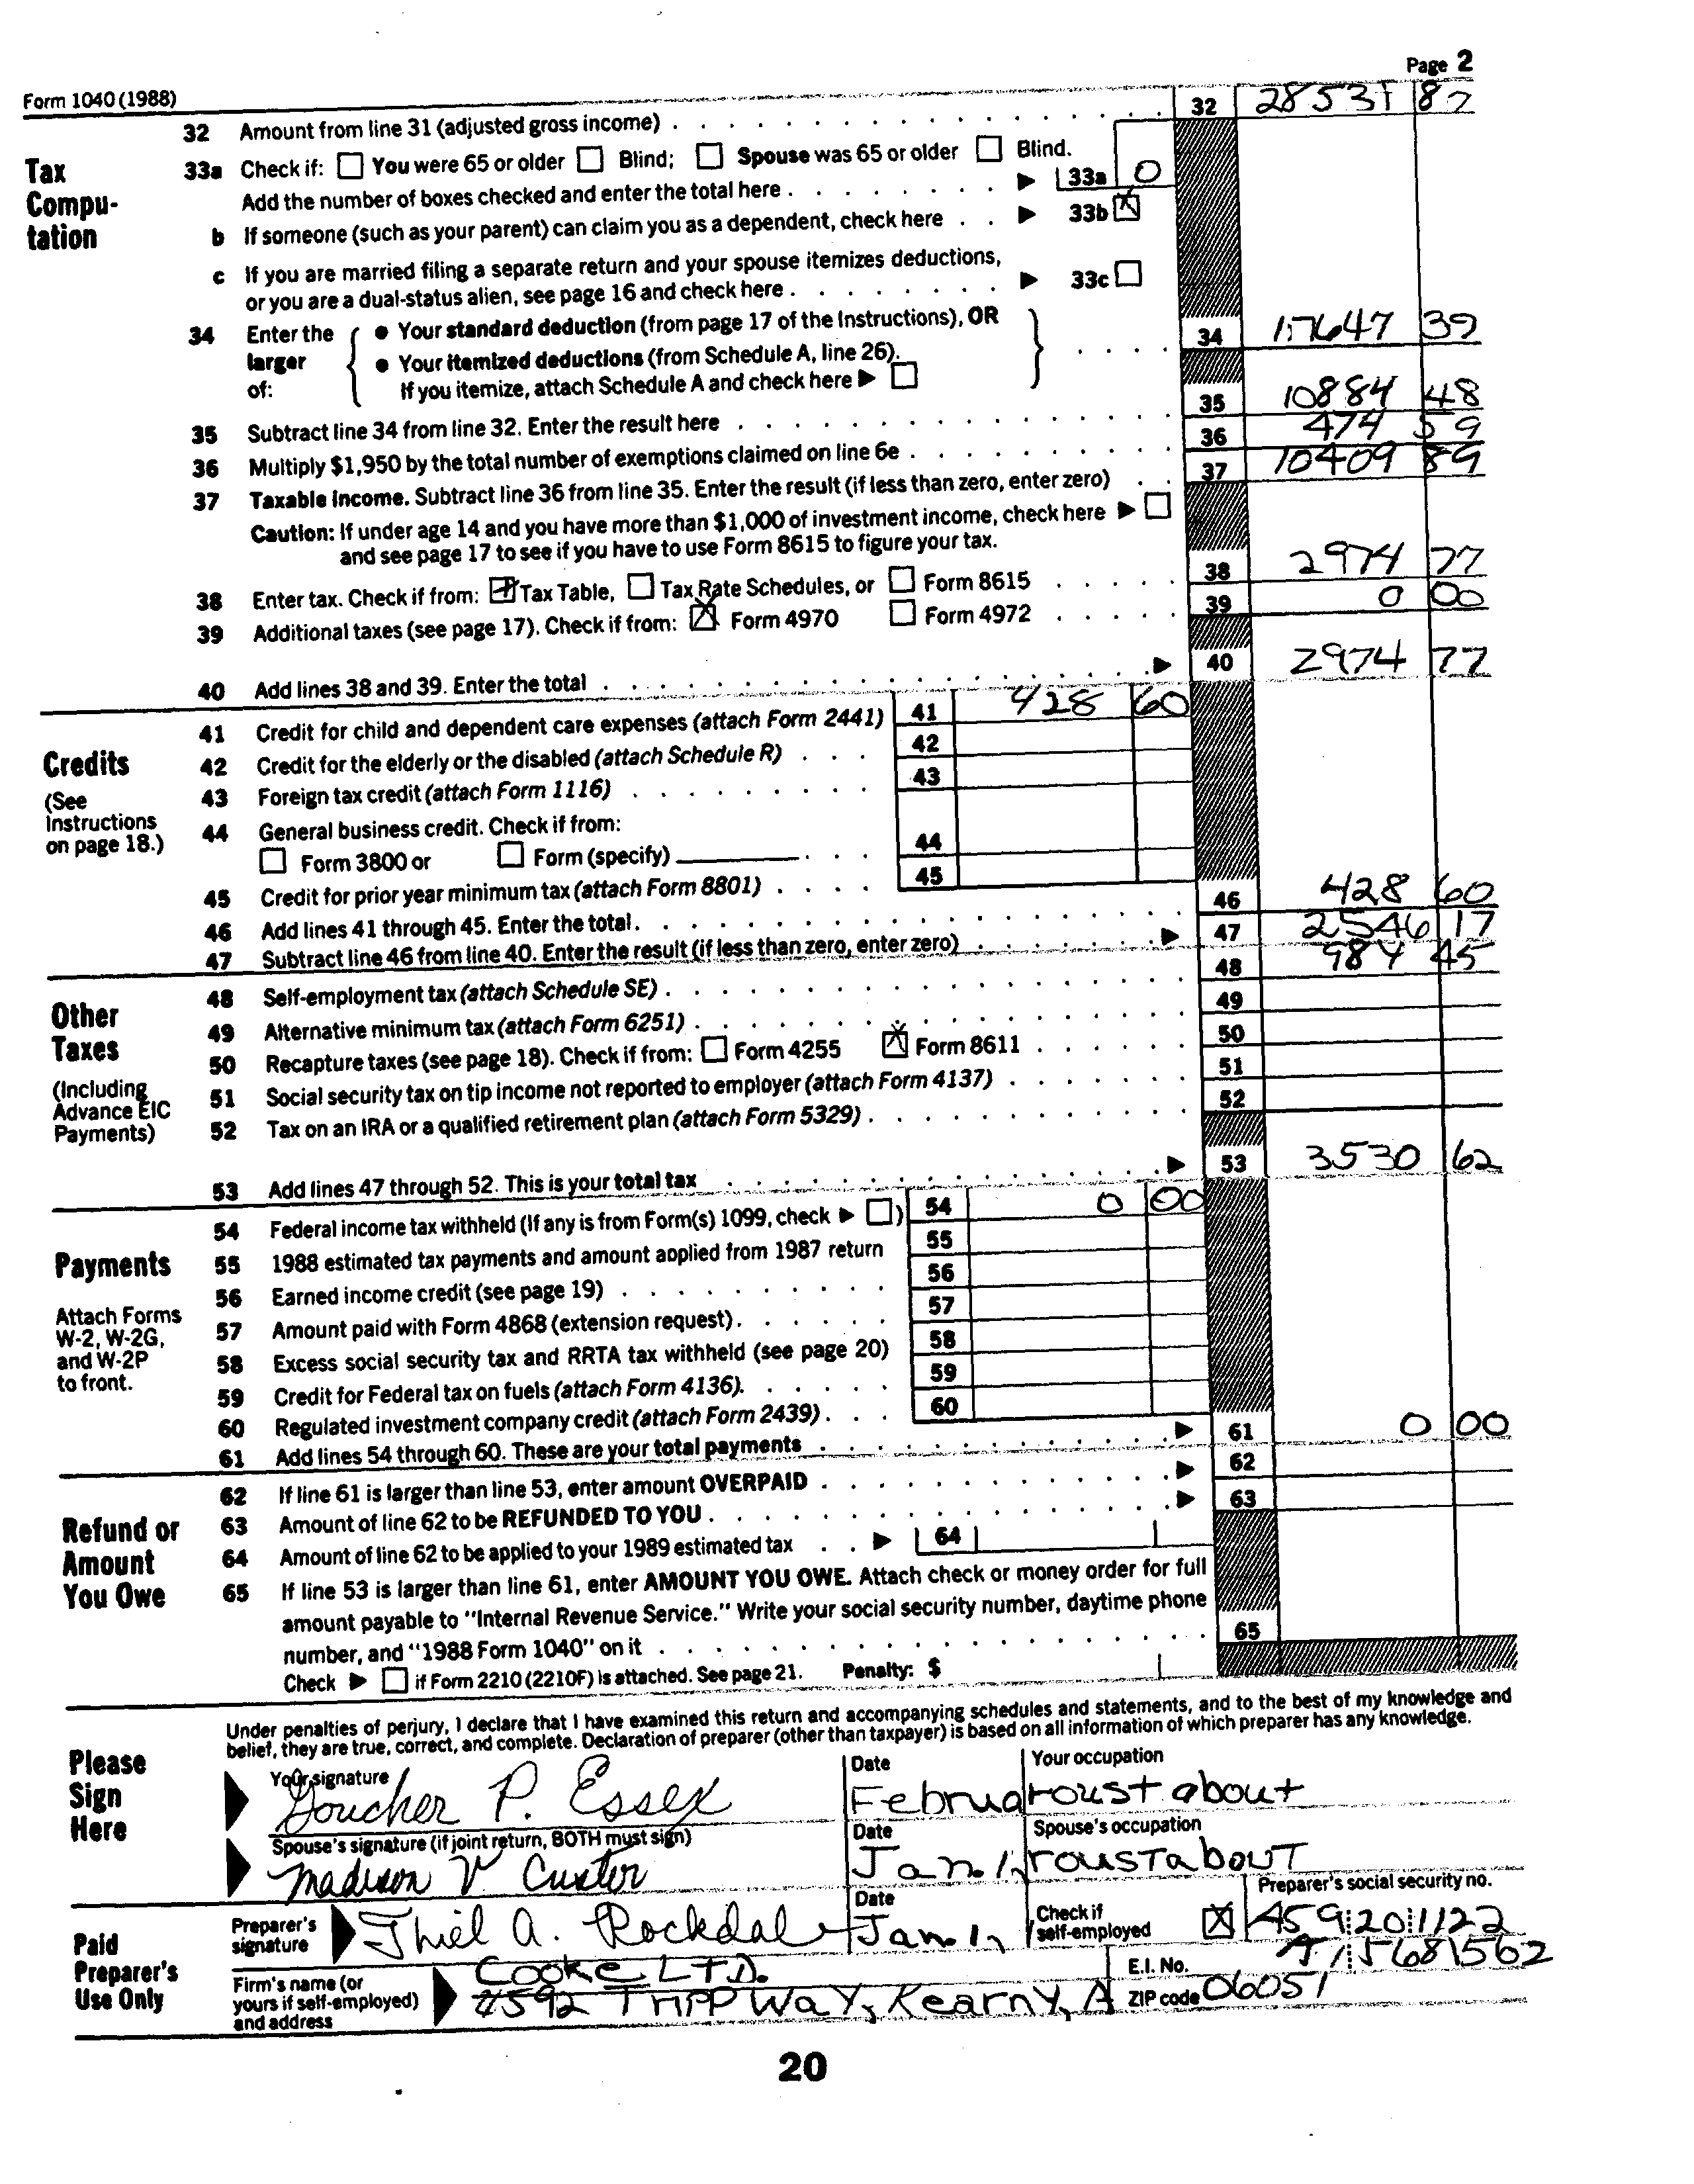 Form 1040 (1988) Page 2
Tax Computation
32 Amount from line 31 (adjusted gross income) 32 28531 87
33a Check if: You were 65 or older Blind; Spouse was 65 or older Blind.
Add the number of boxes checked and enter the total here 33a 0
b If someone (such as your parent) can claim you as a dependent, check here 33b X
c If you are married filing a separate return and your spouse itemizes deductions,
or you are a dual-status alien, see page 16 and check here 33c
34 Enter the larger of: • Your standard deduction (from page 17 of the Instructions), OR
• Your itemized deductions (from Schedule A, line 26).
If you itemize, attach Schedule A and check here 34 17647 39
35 Subtract line 34 from line 32. Enter the result here 35 10884 48
36 Multiply $1,950 by the total number of exemptions claimed on line 6e 36 474 59
37 Taxable income. Subtract line 36 from line 35. Enter the result (if less than zero, enter zero) 37 10409 89
Caution: If under age 14 and you have more than $1,000 of investment income, check here
and see page 17 to see if you have to use Form 8615 to figure your tax.
38 Enter tax. Check if from: X Tax Table, Tax Rate Schedules, or Form 8615 38 2974 77
39 Additional taxes (see page 17). Check if from: X Form 4970 Form 4972 39 0 00
40 Add lines 38 and 39. Enter the total 40 2974 77
Credits
(See Instructions on page 18.)
41 Credit for child and dependent care expenses (attach Form 2441) 41 428 60
42 Credit for the elderly or the disabled (attach Schedule R) 42
43 Foreign tax credit (attach Form 1116) 43
44 General business credit. Check if from:
Form 3800 or Form (specify) 44
45 Credit for prior year minimum tax (attach Form 8801) 45
46 Add lines 41 through 45. Enter the total. 46 428 60
47 Subtract line 46 from line 40. Enter the result (if less than zero, enter zero) 47 2546 17
Other Taxes
(Including Advance EIC Payments)
48 Self-employment tax (attach Schedule SE) 48 984 45
49 Alternative minimum tax (attach Form 6251) 49
50 Recapture taxes (see page 18). Check if from: Form 4255 X Form 8611 50
51 Social security tax on tip income not reported to employer (attach Form 4137) 51
52 Tax on an IRA or a qualified retirement plan (attach Form 5329) 52
53 Add lines 47 through 52. This is your total tax 53 3530 62
Payments
Attach Forms W-2, W-2G, and W-2P to front.
54 Federal income tax withheld (If any is from Form(s) 1099, check ) 54 0 00
55 1988 estimated tax payments and amount applied from 1987 return 55
56 Earned income credit (see page 19) 56
57 Amount paid with Form 4868 (extension request). 57
58 Excess social security tax and RRTA tax withheld (see page 20) 58
59 Credit for Federal tax on fuels (attach Form 4136). 59
60 Regulated investment company credit (attach Form 2439) 60
61 Add lines 54 through 60. These are your total payments 61 0 00
Refund or Amount You Owe
62 If line 61 is larger than line 53, enter amount OVERPAID 62
63 Amount of line 62 to be REFUNDED TO YOU 63
64 Amount of line 62 to be applied to your 1989 estimated tax 64
65 If line 53 is larger than line 61, enter AMOUNT YOU OWE. Attach check or money order for full
amount payable to "Internal Revenue Service." Write your social security number, daytime phone
number, and "1988 Form 1040" on it 65
Check if Form 2210 (2210F) is attached. See page 21. Penalty: $
Please Sign Here
Under penalties of perjury, I declare that I have examined this return and accompanying schedules and statements, and to the best of my knowledge and
belief, they are true, correct, and complete. Declaration of preparer (other than taxpayer) is based on all information of which preparer has any knowledge.
Your signature Date Your occupation
P. Essex Februa roustabout
Spouse's signature (if joint return, BOTH must sign) Date Spouse's occupation
Madison V Custer Jan. 1, roustabout
Paid Preparer's Use Only
Preparer's signature Thiel A. Rockdale Date Jan. 1, Check if self-employed X Preparer's social security no. 459 20 1122
Firm's name (or yours if self-employed) and address Cooke LTD. E.I. No. 15681562
4592 Way, Kearny, A ZIP code 06051
20